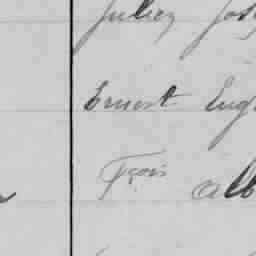 Julien Jos
Ernest Eug
Fçois Alb